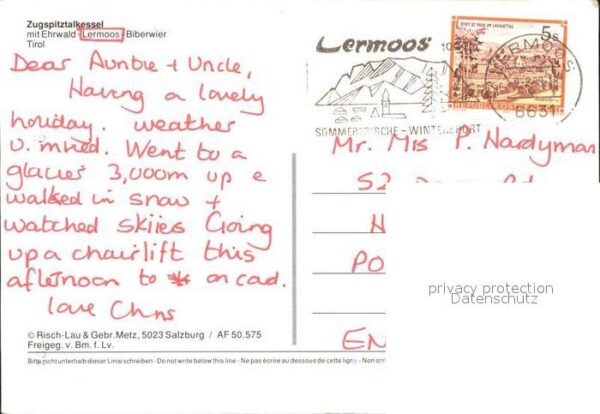 Zugspitztalkessel
mit Ehrwald - Lermoos - Biberwier
Tirol
Dear Auntie + Uncle,
Having a lovely
holiday. weather
v. mixed. Went to a
glacier 3,000m up e
walked in snow +
watched skiies Going
up a chairlift this
afternoon to on cad.
love Chris
© Risch-Lau & Gebr. Metz, 5023 Salzburg / AF 50.575
Freigeg. v. Bm. f. Lv.
Bitte nicht unterhalb dieser Linie schreiben - Do not write below this line - Ne pas écrire au dessous de cette ligne - Non scr
Lermoos
SOMMERFRISCHE - WINTERSPORT
STIFT ST. PAUL IM LAVANTTAL
5s
REPUBLIK ÖSTERREICH
LERMOOS
6631
Mr. Mis P. Nardyman
52 Rd
N
PO
EN
privacy protection
Datenschutz